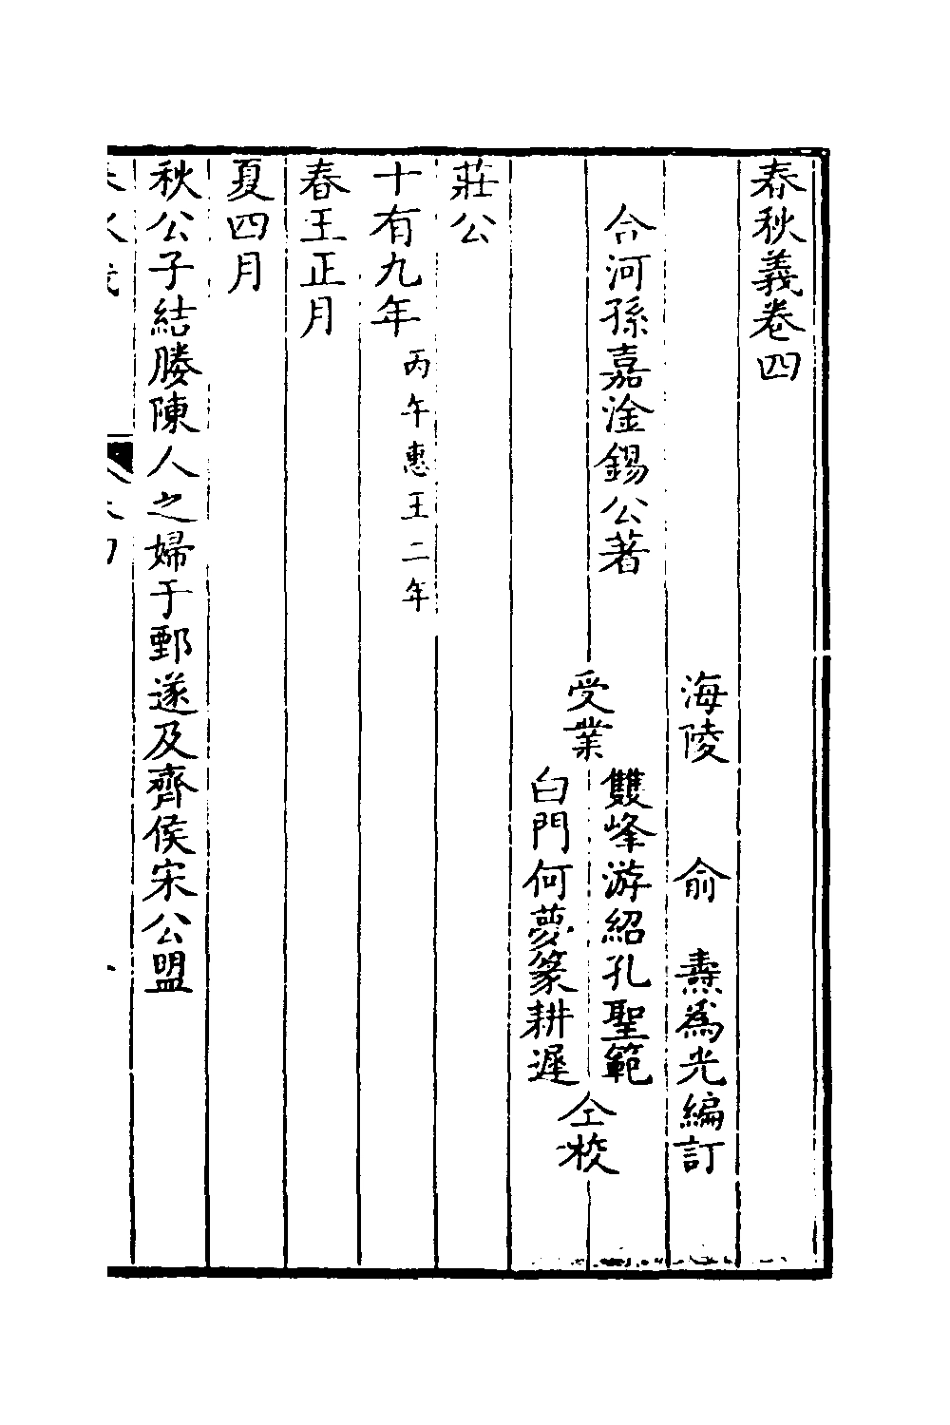 春秋義卷四
海陵 俞 燾為光編訂
合河孫嘉淦錫公著
受業
雙峰游紹孔聖範
白門何夢篆耕遲
仝挍
莊公
十有九年丙午惠王二年
春王正月
夏四月
秋公子結媵陳人之婦于鄄遂及齊侯宋公盟